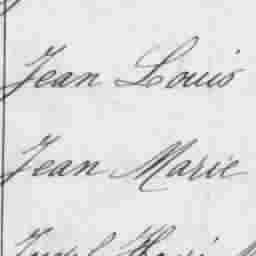 Jean Louis
Jean Marie